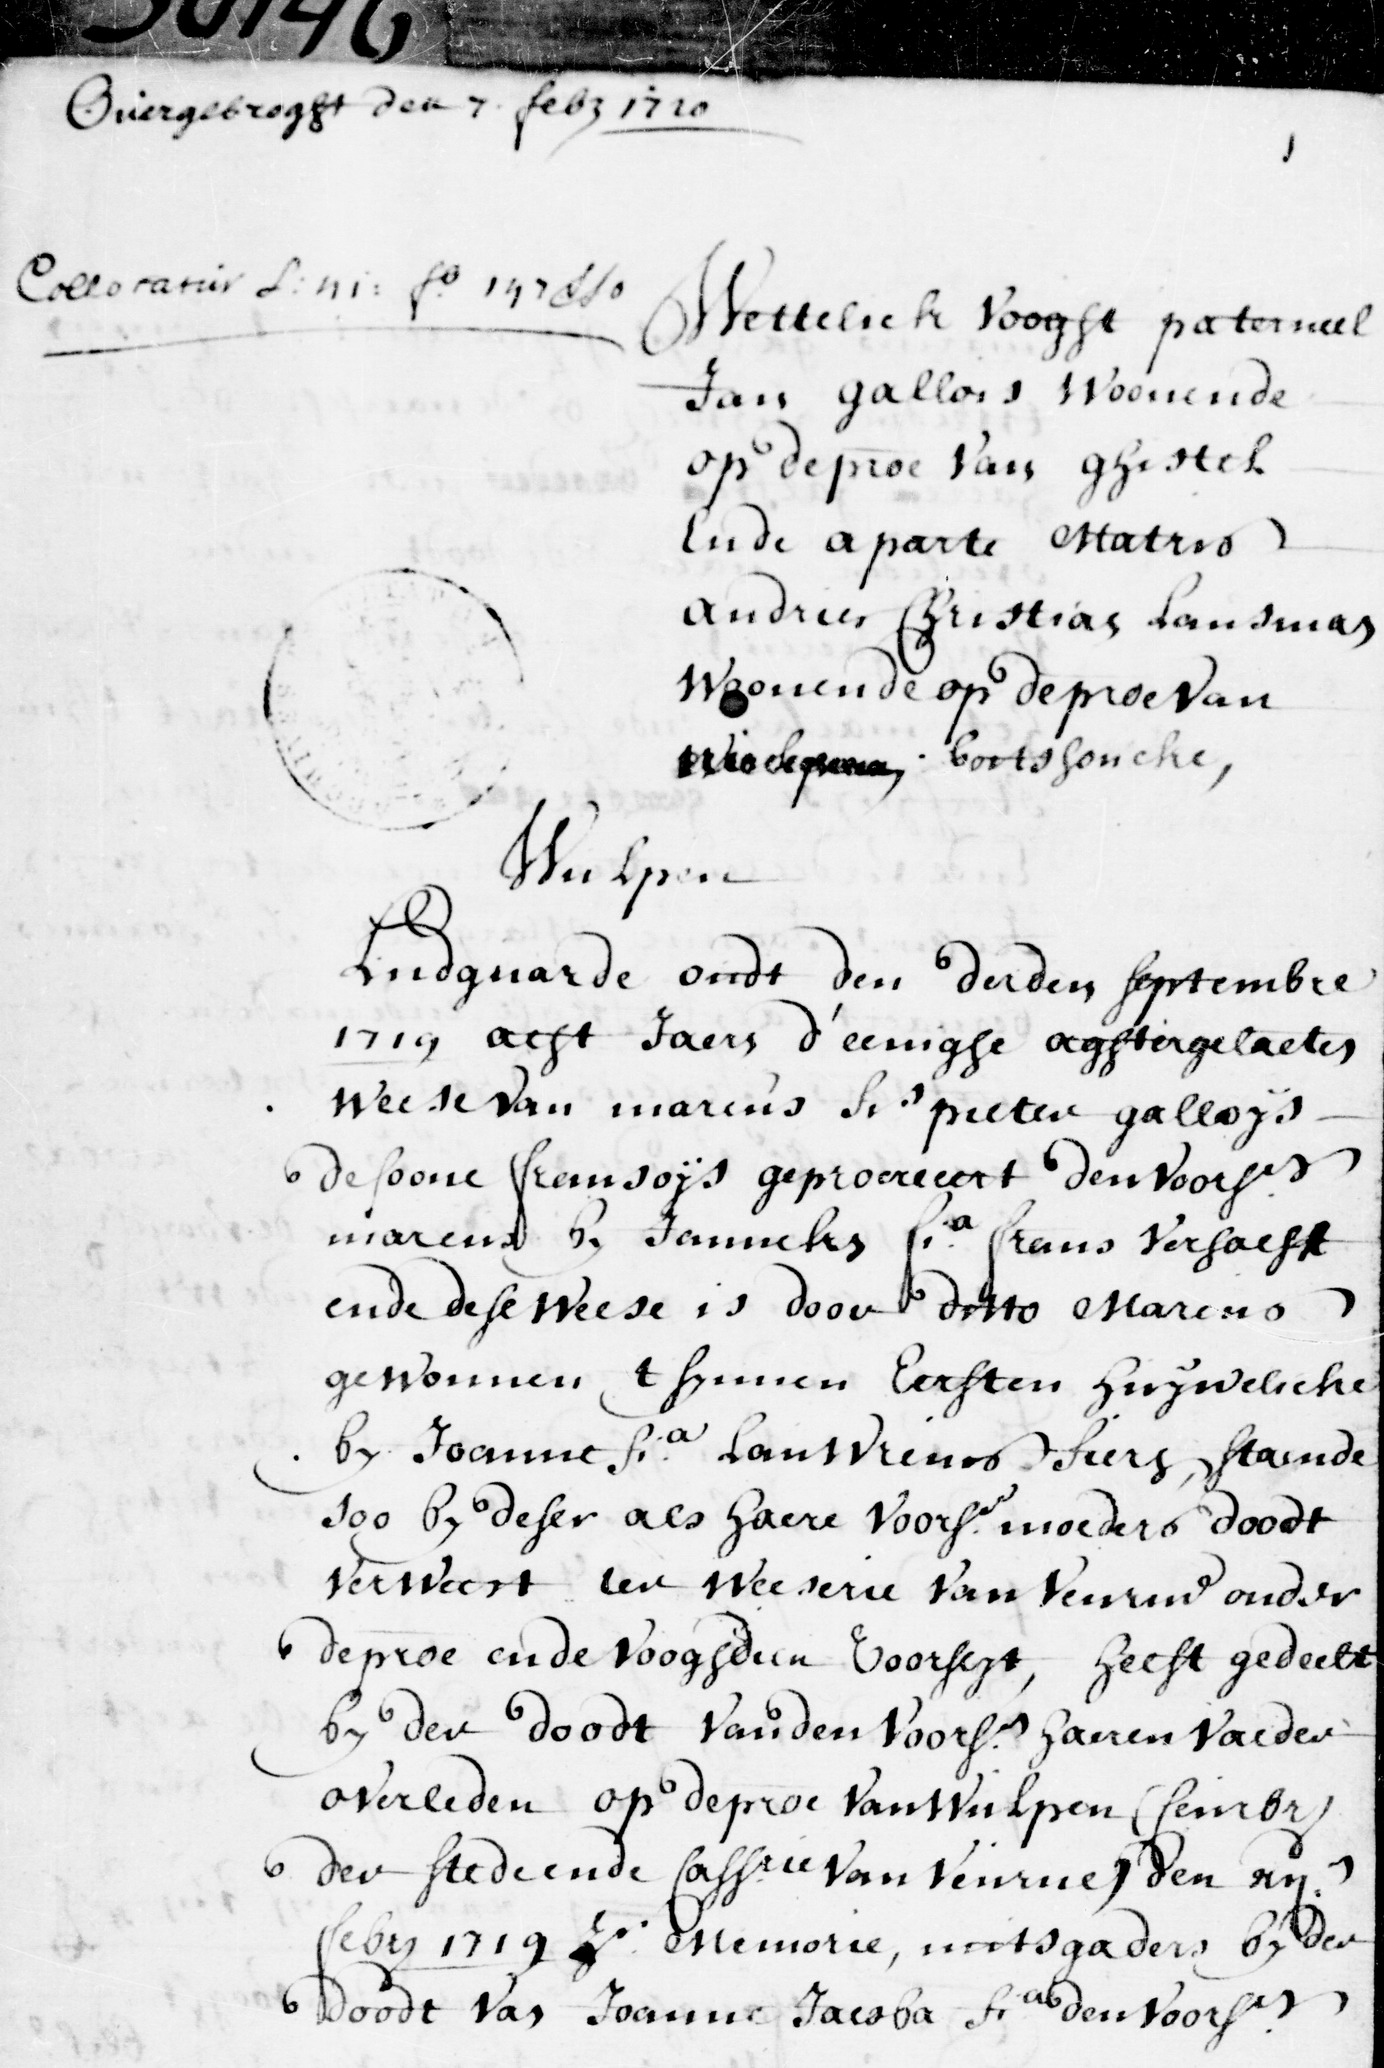 30146
Overgebroght den 7. feb3 1720
1
Collocatur L: n1: fo 147
Wettelick Vooght paterneel
Jan gallois Woonende
op de proe Van ghistel
Ende aparte Matris
andries Christiaen Lansman
Woonende op de proe Van
bortshoucke,
Wulpen
Ludguarde oudt den derden septembre
1719 acht Jaers d'eenighe aghtergelaeten
Weese Van marcus fs pieter galloijs
de soone fransoijs geprocreeert den Voorsn
marcus by Janneken fia frans Verhaeghe
ende dese Weese is door ditto Marcus
gewonnen t synnen Eersten huijwelicke
by Joanne fia Lauwreins fiers, staende
soo by deser als haere Voorsn moeders doodt
verweest ter Weeserie Van Veurne onder
de proe ende Vooghdien Voorseyt, heeft gedeelt
by der doodt Van den Voorsn haeren Vaeder
overleden op de proe Van Wulpen (
der stede ende Cassrie Van Veurne) den xij.
feby 1719 Memorie, mitsgaders by der
doodt Van Joanne Jacoba fia den Voorsn